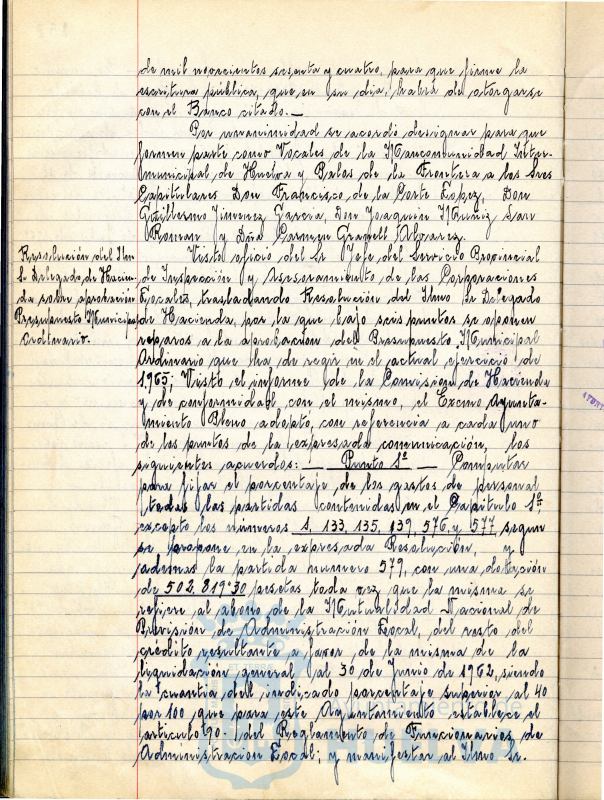 de mil novecientos sesenta y cuatro, para que firme la
escritura pública, que en su dia, habrá de otorgarse
con el Banco citado.—
Por unanimidad se acordó designar para que
formen parte como Vocales de la Mancomunidad Inter-
municipal de Huelva y Palos de la Frontera a los Sres
Capitulares Don Francisco de la Corte Lopez, Don
Guillermo Jimenez Garcia, Don Joaquin Muñiz San
Roman y Dña. Carmen Granell Alvarez.
Resolución del Ilmo
Sr. Delegado de Hacien-
da sobre aprobación
Presupuesto Municipal
Ordinario.
Visto oficio del Sr Jefe del Servicio Provincial
de Inspección y Asesoramiento de las Corporaciones
Locales, trasladando Resolución del Ilmo Sr Delegado
de Hacienda, por la que bajo seis puntos se oponen
reparos a la aprobación del Presupuesto Municipal
Ordinario que ha de regir en el actual ejercicio de
1965; Visto el informe de la Comision de Hacienda
y de conformidad con el mismo, el Excmo Ayunta-
miento Pleno adoptó, con referencia a cada uno
de los puntos de la expresada comunicación, los
siguientes acuerdos: — Punto 1º — Computar
para fijar el porcentaje de los gastos de personal
todas las partidas contenidas en el Capitulo 1º,
excepto los números 1, 133, 135, 139, 576 y 577 segun
se propone en la expresada Resolución, y
además la partida número 579, con una dotación
de 502.819'30 pesetas toda vez que la misma se
refiere al abono de la Mutualidad Nacional de
Previsión de Administración Local, del resto del
crédito resultante a favor de la misma de la
liquidación general al 30 de Junio de 1962, siendo
la cuantia del indicado porcentaje superior al 40
por 100 que para este Ayuntamiento establece el
articulo 90 del Reglamento de Funcionarios de
Administración Local; y manifestar al Ilmo Sr.
Ayuntamiento de
HUELVA